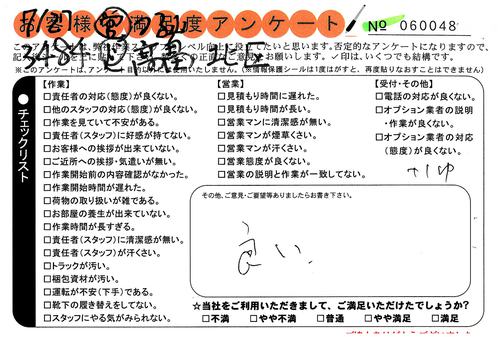 お客様満足度アンケート
No 060048
このアンケートは、弊社作業スタッフのレベル向上に役立てたいと思います。否定的なアンケートになりますので、
お願いします。✓印は、いくつでも結構です。
※このアンケートは、アンケート以外には使用いたしません。(※情報保護シールは1度はがすと、再度貼りなおすことはできません)
北区
●チェックリスト
【作業】
□責任者の対応(態度)が良くない。
□他のスタッフの対応(態度)が良くない。
□作業を見ていて不安がある。
□責任者(スタッフ)に好感が持てない。
□お客様への挨拶が出来ていない。
□ご近所への挨拶・気遣いが無い。
□作業開始前の内容確認がなかった。
□作業開始時間が遅れた。
□荷物の取り扱いが雑である。
□お部屋の養生が出来ていない。
□作業時間が長すぎる。
□責任者(スタッフ)に清潔感が無い。
□責任者(スタッフ)が汗くさい。
□トラックが汚い。
□梱包資材が汚い。
□運転が不安(下手)である。
□靴下の履き替えをしてない。
□スタッフにやる気がみられない。
【営業】
□見積もり時間に遅れた。
□見積もり時間が長い。
□営業マンに清潔感が無い。
□営業マンが煙草くさい。
□営業マンが汗くさい。
□営業態度が良くない。
□営業の説明と作業が一致してない。
【受付・その他】
□電話の対応が良くない。
□オプション業者の説明
・作業が良くない。
□オプション業者の対応
(態度)が良くない。
その他、ご意見・ご要望等ありましたらお書き下さい。
良い.
☆当社をご利用いただきまして、ご満足いただけたでしょうか?
□不満 □やや不満 □普通 □やや満足 □満足